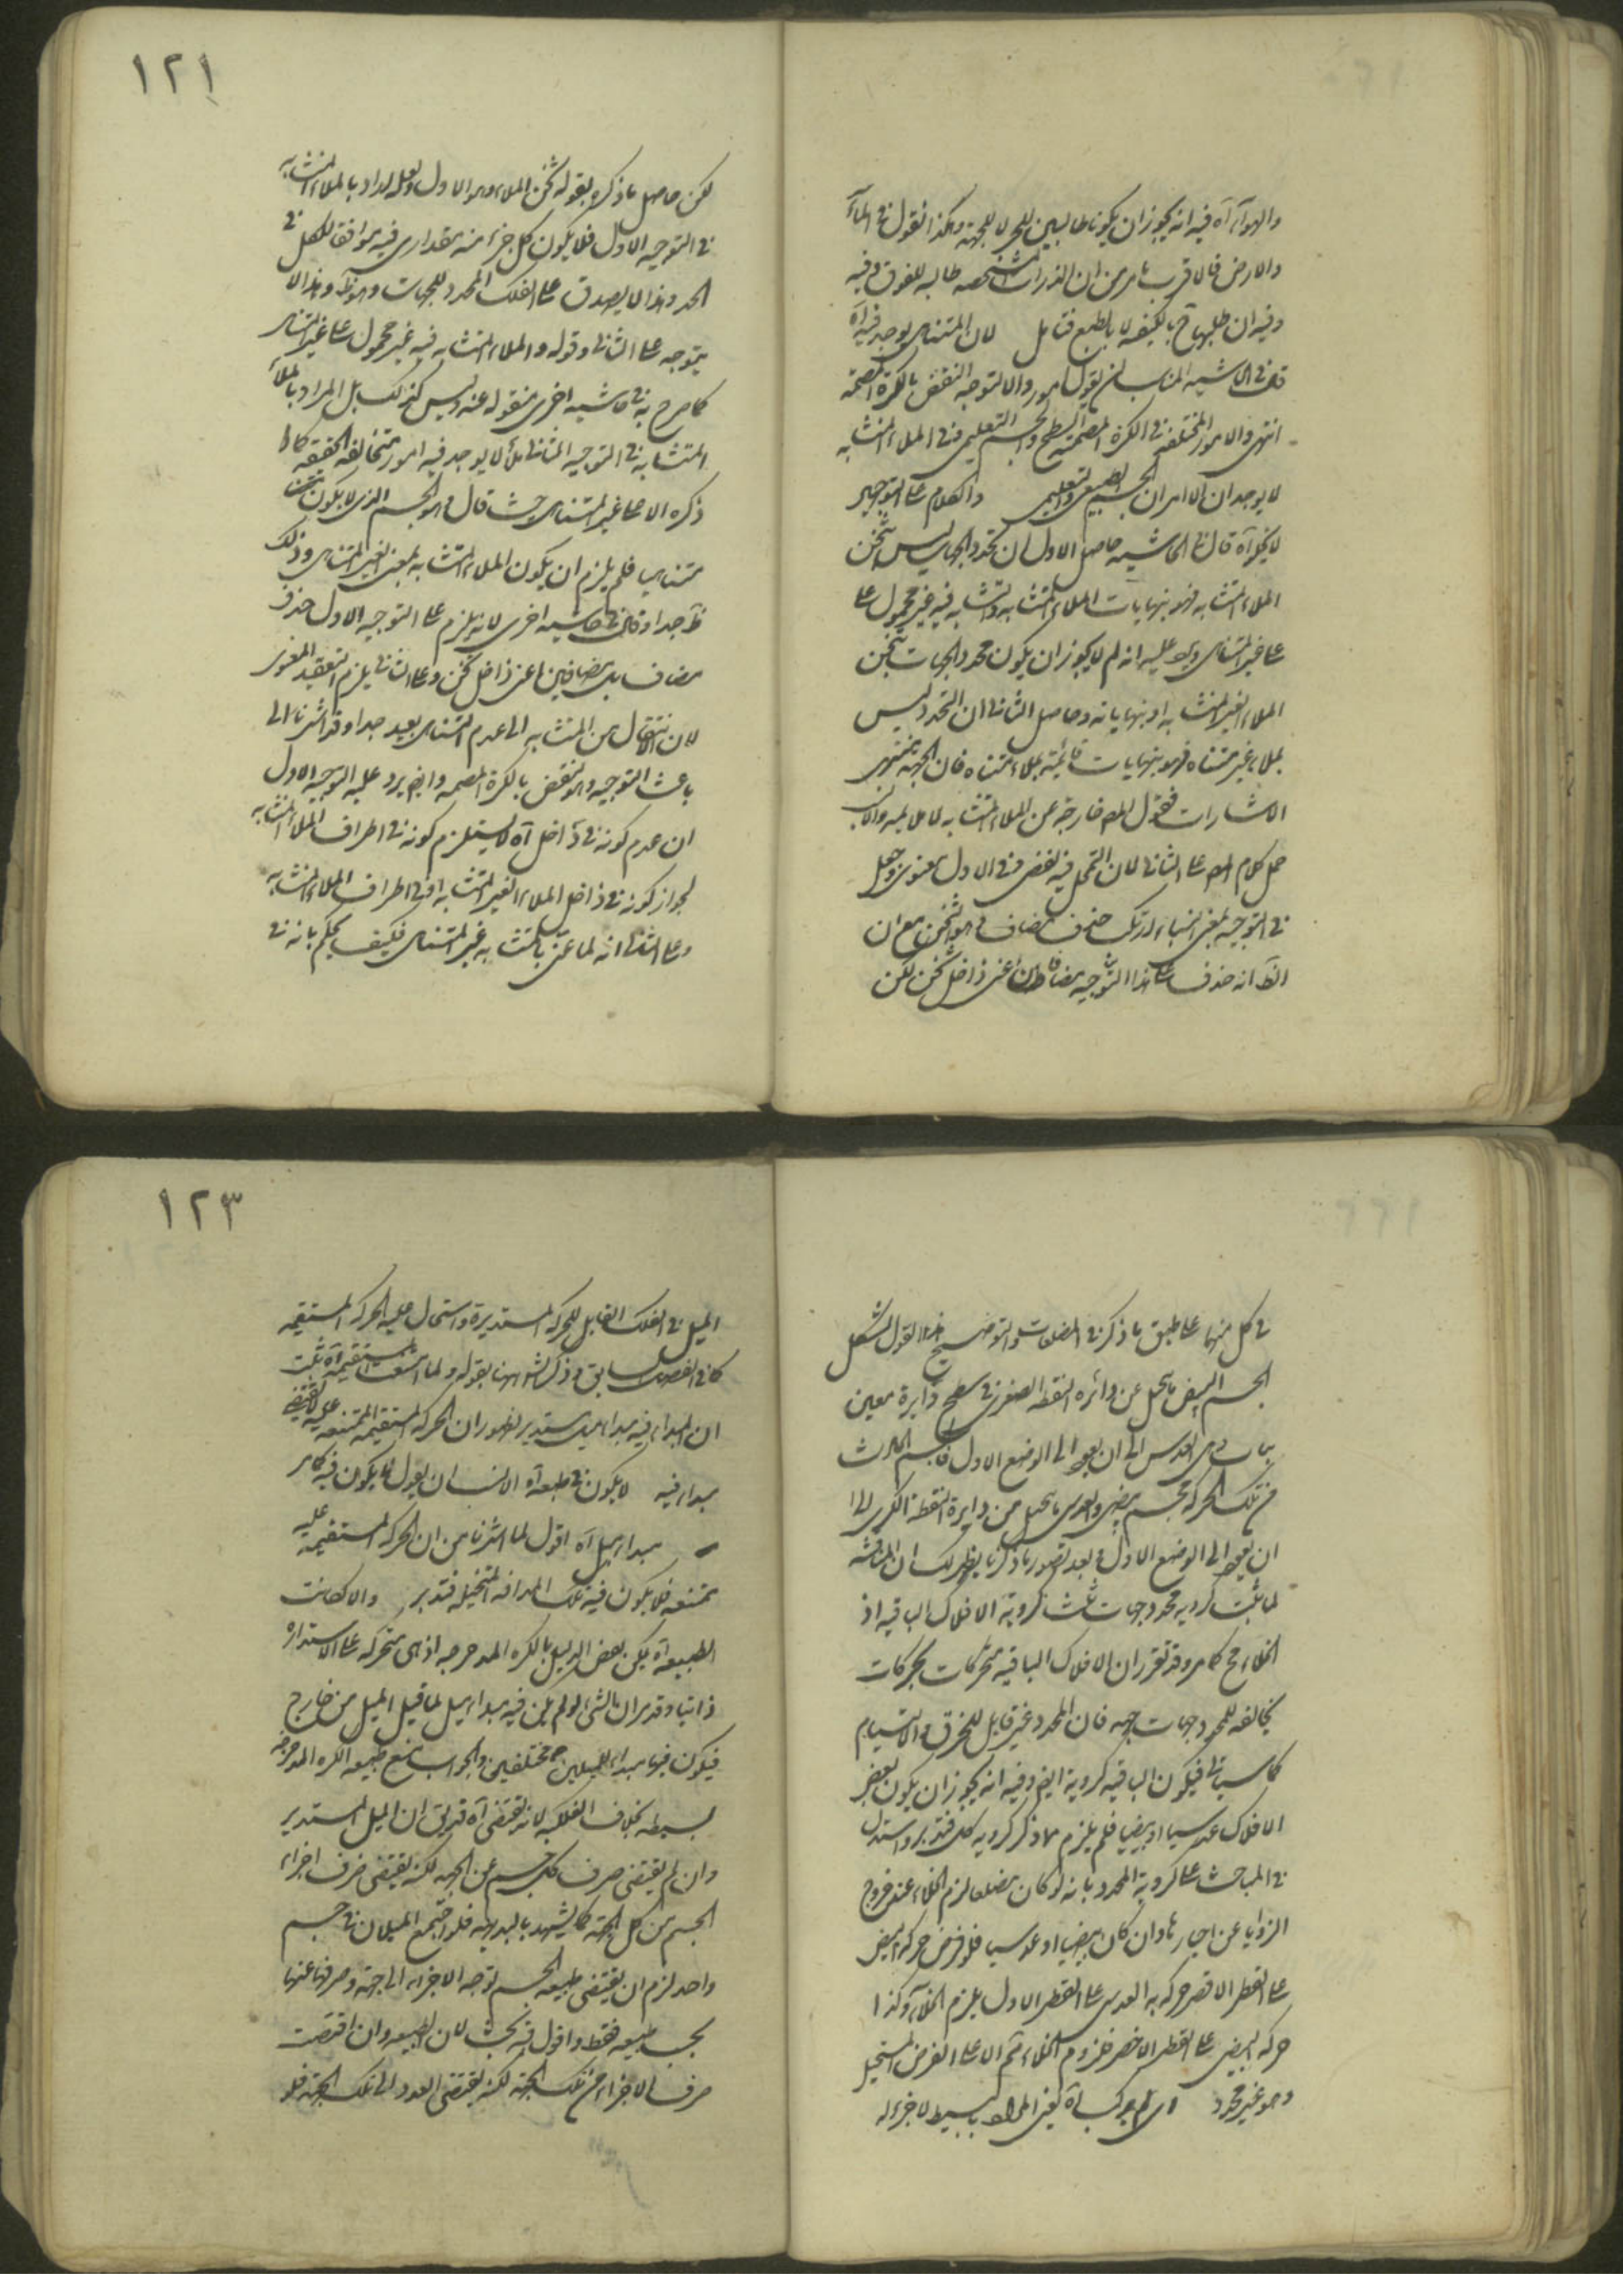 ١٢١
والهوآء آه فيه انه يجوز ان يكونا طالبين للحيز لا للجهة وهكذا نقول في المآء
والارض فالاقرب ما مر من ان الذرات طالبة للفوق وفيه
وفيه ان طلبهاح بالطبع فتامل لان المتناهي يوجد فيه آه
في الحاشية المناسب ان يقول امور والا لتوجه النقض بالكرة المصمتة
انتهى والامور المختلفة في الكرة المصمتة السطح والجسم التعليمي وفي الملاء المتشابه
لا يوجد ان الا امران الجسم الطبيعي والتعليمي والكلام على التوجيه
لا يخلو آه قال في الحاشية حاصل الاول ان تحدد الجهات ليس بثخن
الملاء المتشابه فهو بنهايات الملاء المتشابه والمتشابه فيه غير محمول على
على غير المتناهي ويرد عليه انه لم لا يجوز ان يكون محدد الجهات بثخن
الملاء الغير المتشابه او بنهاياته وحاصل الثاني ان التحدد ليس
بملاء غير متناه فهو بنهايات قائمة بملاء متناه فان الجهة منتهى
الاشارات فقول المص خارجة عن الملاء المتشابه لا يلايمه والا
حمل كلام المص على الثاني لان التمحل فيه لفظي وفي الاول معنوي وجعل
في التوجيه بمعنى ارتكب حذف مضاف وهو الثخن مع ان
الظ انه حذف على هذا التوجيه مضافان اعني داخل ثخن لكن
لكن حاصل ما ذكره بقوله ثخن الملاء وهو الاول ولعله اراد بالملاء المتشابه
في التوجيه الاول فلا يكون كل جزء منه مقداري فيه موافقا للكل في
الحد وهذا لا يصدق على الفلك المحدد للجهات وهو ظ وهذا لا
يتوجه على الثاني وقوله والملاء المتشابه فيه غير محمول على غير المتناهي
كما صرح به في حاشية اخرى منقوله عنه وليس كذلك بل المراد بالملاء
المتشابه في التوجيه الثاني ملأ لا يوجد فيه امور متخالفة الحقيقة كما
ذكره الا على غير المتناهي حيث قال وهو الجسم الذي لا يكون
متناهي فلم يلزم ان يكون الملاء المتشابه بمعنى الغير المتناهي وذلك
ظ جدا وقال في حاشية اخرى لانه يلزم على التوجيه الاول حذف
مضاف بل مضافين اعني داخل ثخن وعلى الثاني يلزم التعقيد المعنوي
لان الانتقال من المتشابه الى عدم التناهي بعيد جدا وقد اشرنا الى
باعث التوجيه وهو النقض بالكرة المصمتة وايض يرد عليه التوجيه الاول
ان عدم كونه في داخل آه لا يستلزم كونه في اطراف الملاء المتشابه
لجواز كونه في داخل الملاء الغير المتشابه او في اطراف الملاء المتشابه
وعلى الثاني انه لما عنى بالمتشابه غير المتناهي فكيف يحكم بانه في
١٢٣
في كل منهما على طبق ما ذكر في المضلعات والتوضيح القول الشكل
الجسم البيضي ما يحصل عن دائره النقطه الصغرى في سطح دايرة معين
العدسي الى ان يعود الى الوضع الاول فالجسم الحادث
من تلك الحركة مجسم بيضي والعدسي ما يحصل من دايرة النقطة الكبرى الى
ان يعود الى الوضع الاول وبعد تصور ما ذكرنا يظهر لك ان المناقشة
لما ثبت كروية محدد جهات ثبت كروية الافلاك الباقية اذ
الخلاء مح كما مر وقد تقرر ان الافلاك الباقية متحركات بحركات
مخالفة للمحدد جهات جهة فان المحدد غير قابل للخرق والالتيام
كما سياتي فيكون الباقية كروية ايض وفيه انه يجوز ان يكون بعض
الافلاك عدسيا او بيضيا فلم يلزم مما ذكر كروية كل فتدبر واستدل
في المباحث على كروية المحدد بانه لو كان مضلعا لزم الخلاء عند خروج
الزوايا عن احيازها وان كان بيضيا او عدسيا فلو فرض حركة البيضي
على القطر الاقصر وحركة العدسي على القطر الاول يلزم الخلاء وكذا
حركة البيضي على القطر الاخصر فلزوم الخلاء ثم الا على الفرض المستحيل
وهو غير محدد اي لم يتركب آه يعني المراد بالبسيط لا جزء له
الميل في الفلك القابل للحركه المستديرة واستحال عليه الحركة المستقيمة
كما في الفصل السابق وذكر الش ههنا بقوله ولما المستقيمة آه ثبت
ان المبداء فيه مبداء ميل مستدير لظهور ان الحركة المستقيمة الممتنعة عليه لا يقتضي
مبداء فيه لا يكون في طبعه آه الانسب ان يقول لا يكون فيه كما مر
مبداء ميل آه اقول لما اشرنا من ان الحركة المستقيمة عليه
ممتنعة فلا يكون فيه تلك المدافعة المتخيلة فتدبر والا لكانت
الطبيعة آه يمكن نقض الدليل بالكره المدحرجه اذ هي متحركة على الاستدارة
ذاتيا وقد مر ان الشيء لو لم يكن فيه مبداء ميل لما قبل الميل من خارج
فيكون فيها مبداء للميلين مختلفين والجواب بمنع طبيعة الكره المدحرجة
بسيطه بخلاف الفلكيه لانه يقتضي آه قد يق ان الميل المستدير
وان لم يقتض صرف كل جسم عن الجهة لكنه يقتضي صرف اجزاء
الجسم من كل الجهة كما يشهد بالبديهة فلو اجتمع الميلان في جسم
واحد لزم ان يقتضي طبيعة الجسم توجه الاجزاء الى جهة وصرفها عنها
بحسب طبيعه فقط واقول فيه بحث لان الطبيعة وان اقتضت
صرف الاجزاء من تلك الجهة لكنه يقتضي العود الى تلك الجهة فلو